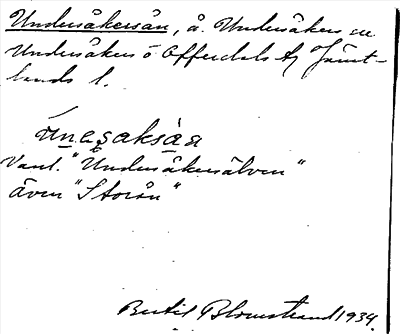 Undersåkersån, å. Undersåkers sn
Undersåkers o Offerdals tg Jämt-
lands l.
únəʂakṣåa
Vanl. "Undersåkersälven"
även "Storån"
Bertil Blomstrand 1934.